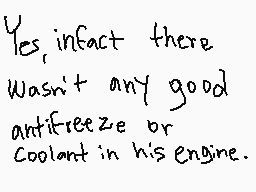 Yes, infact there
wasn't any good
antifreeze or
coolant in his engine.